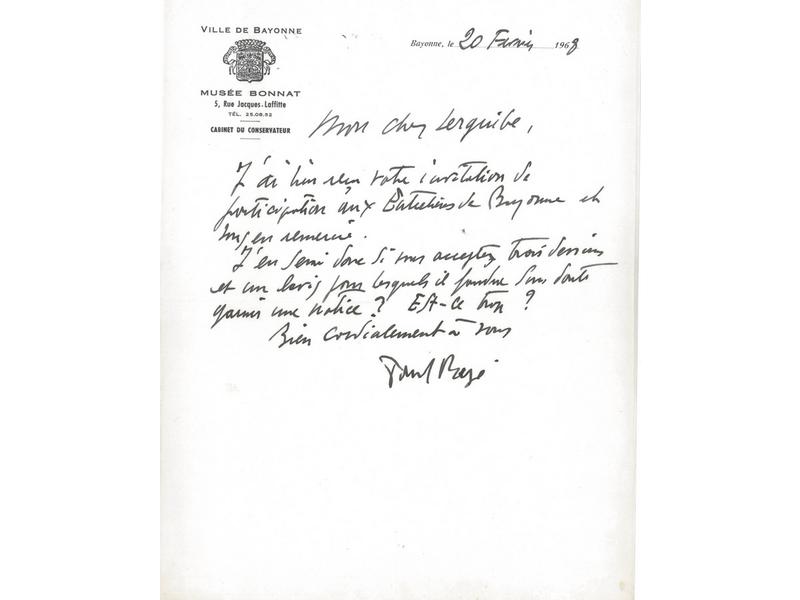 VILLE DE BAYONNE
MUSÉE BONNAT
5, Rue Jacques-Laffitte
TÉL. 25.08.52
CABINET DU CONSERVATEUR
Bayonne, le 20 Février 1968
Mon cher Lerquibe,
J'ai bien reçu votre invitation de
participation aux Entretiens de Bayonne et
vous en remercie.
J'en serai donc si vous acceptez trois dessins
et un lavis pour lesquels il faudra sans doute
garnir une notice ? Est-ce trop ?
Bien cordialement à vous
Paul Bazé